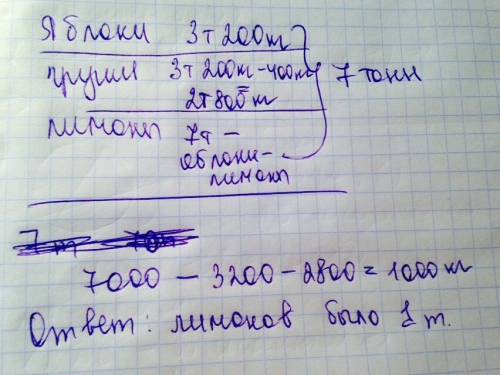 Яблоки 3т 200т
груши 3т 200т-400кг 7 тонн
2т 800т
лимоны 7т -
яблоки-
лимоны
7000 - 3200 - 2800 = 1000 кг
Ответ: лимонов было 1 т.